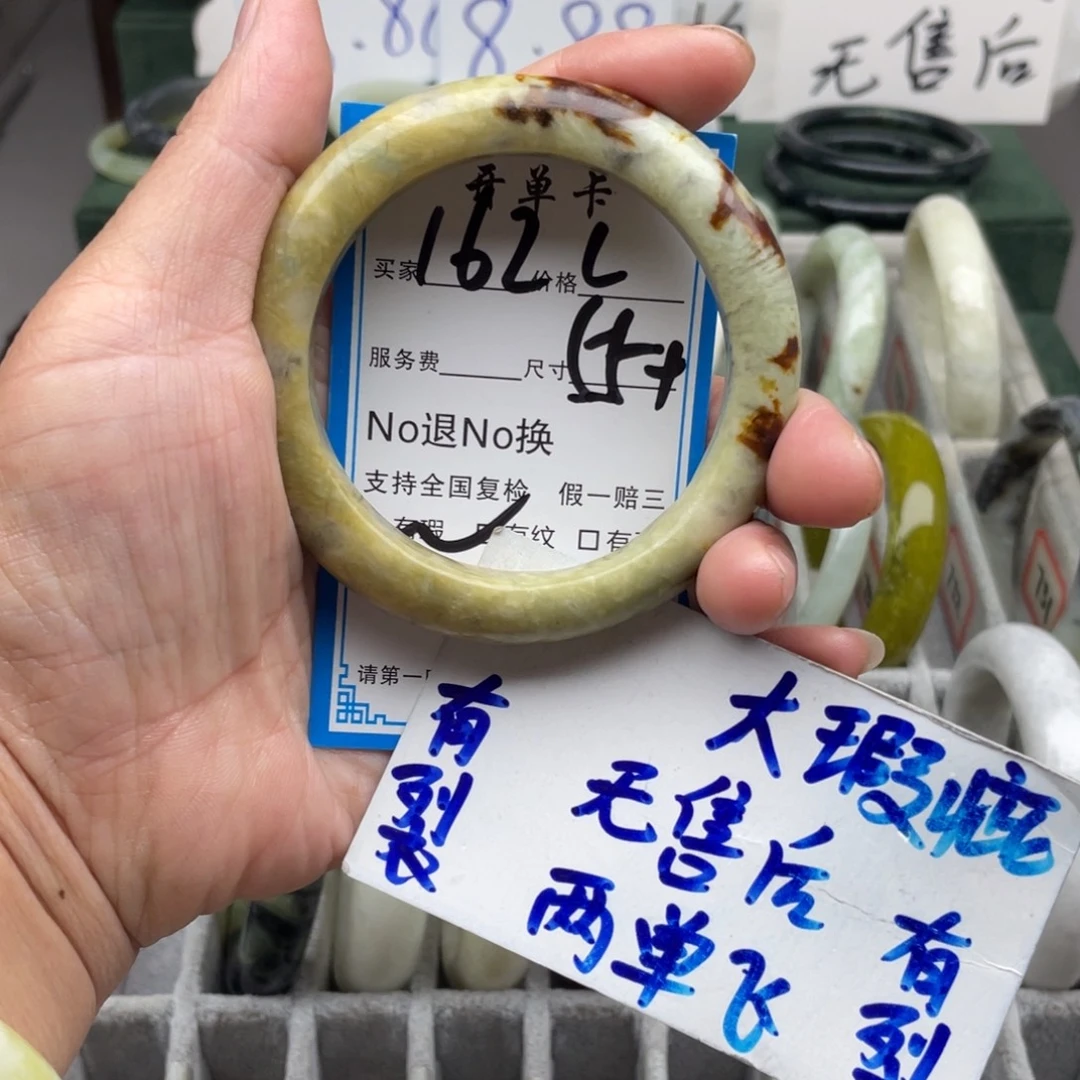 .8
8.88
无售后
开单卡
买家 162 价格 L
服务费 尺寸 55+
No退No换
支持全国复检 假一赔三
有瑕 口有纹 口有
请第一
有裂
大瑕疵
无售后
两单飞
有裂